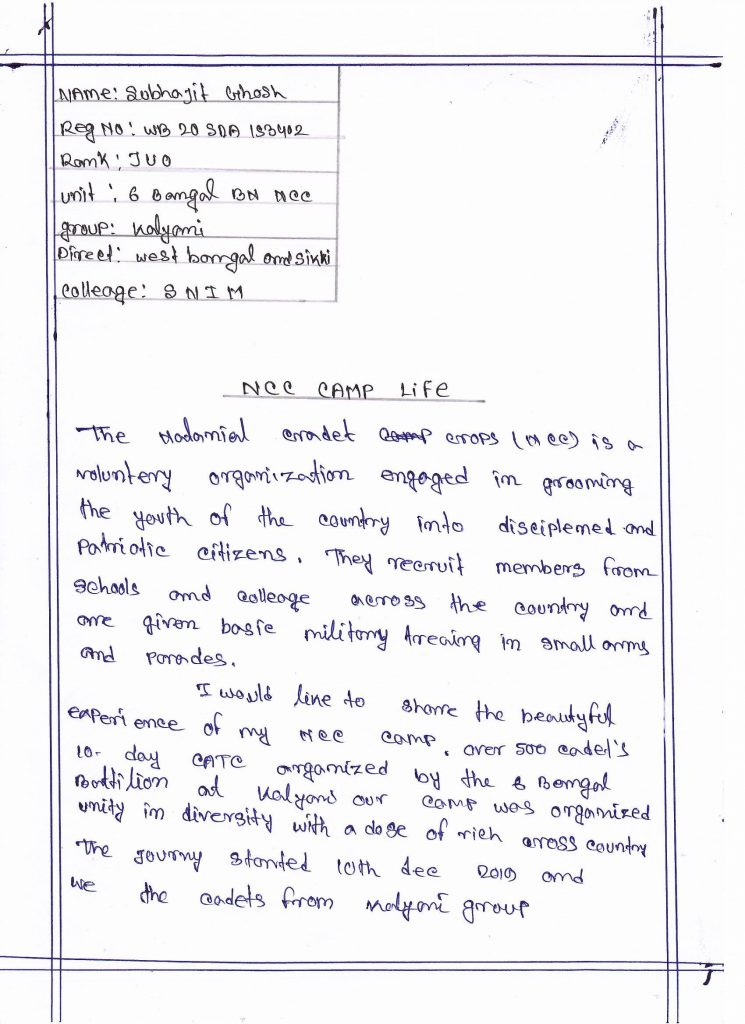 NAME: Subhajit Ghosh
Reg No: WB 20 SDA 153402
Rank: JUO
unit: 6 Bangal BN NCC
group: Kalyani
Direct: west bangal and sikki
Colleage: SNIM
NCC CAMP LiFe
The cadet crops (NCC) is a
voluntery organization engaged in grooming
the youth of the country into disciplemed and
Patriotic citizens. They recruit members from
schools and colleage across the country and
are given basic military in small arms
and Parades.
I would like to share the beautyful
experience of my NCC camp. over 500 cadet's
10-day CATC organized by the 6 Bangal
Battilion at Kalyani our camp was organized
unity in diversity with a dose of rich cross country
The Journy started 10th dec 2019 and
we the cadets from Kalyani group